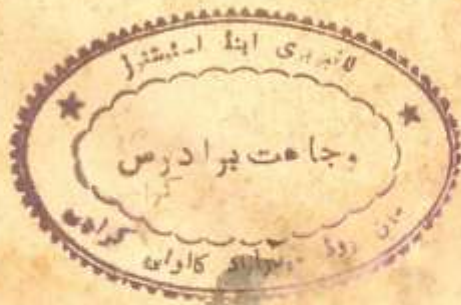 لائبریری اینڈ اسٹیشنرز
وجاهت برادرس
روڈ کالونی کراچی